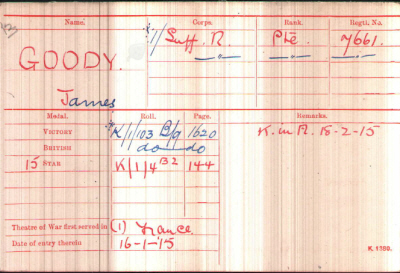 Name. Corps. Rank. Regtl. No.
GOODY. 1/ Suff. R. Pte. 7661.
James
Medal. Roll. Page. Remarks.
VICTORY K/1/103 B9 1620 K. in A. 15-2-15
BRITISH do do
15 STAR K/1/4 B2 144
Theatre of War first served in (1) France.
Date of entry therein 16-1-15
K. 1380.